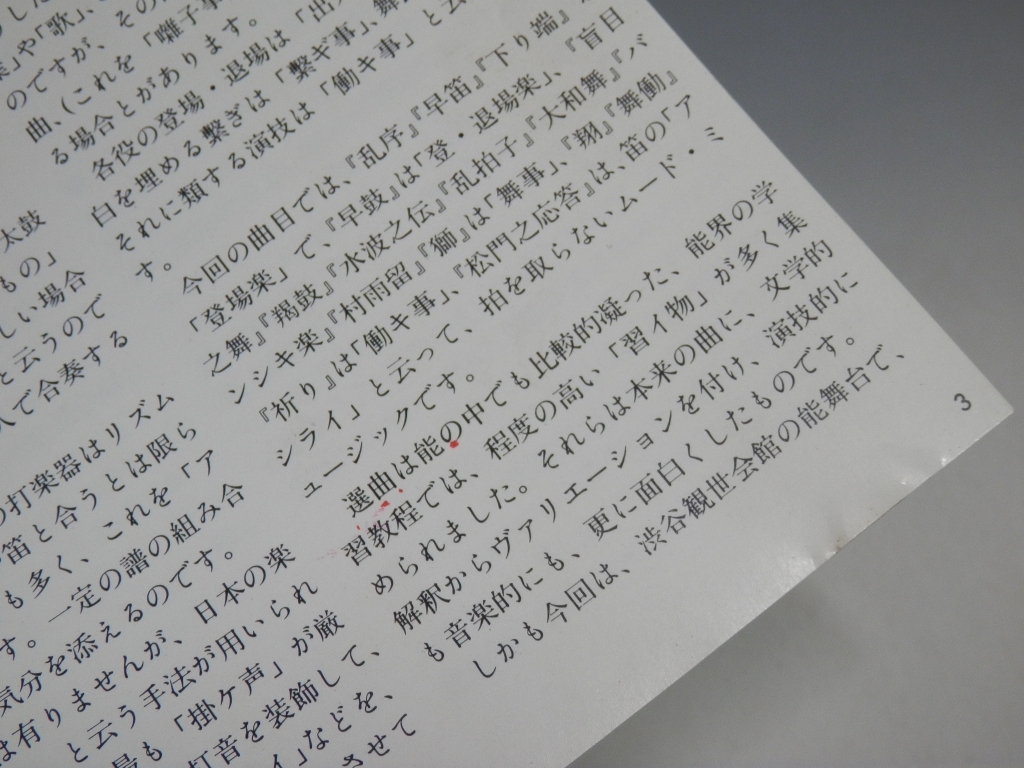 した
楽』や『歌』、
のですが、その
曲、(これを「囃子事
る場合とがあります。
各役の登場・退場は「出
白を埋める繋ぎは「繋ギ事」、舞
それに類する演技は「働キ事」と云
す。
今回の曲目では、『乱序』『早笛』『下り端』
「登場楽」で、『早鼓』は「登・退場楽」、『盲目
之舞』『羯鼓』『水波之伝』『乱拍子』『大和舞』『バ
ンシキ楽』『村雨留』『獅』は「舞事」、『翔』『舞働』
『祈り』は「働キ事」、『松門之応答』は、笛の「ア
シライ」と云って、拍を取らないムード・ミ
ュージックです。
選曲は能の中でも比較的凝った、能界の学
習教程では、程度の高い「習イ物」が多く集
められました。それらは本来の曲に、文学的
解釈からヴァリェーションを付け、演技的に
も音楽的にも、更に面白くしたものです。
しかも今回は、渋谷観世会館の能舞台で、
太鼓
もの」
しい場合
と云うので
人で合奏する
の打楽器はリズム
笛と合うとは限ら
も多く、これを「ア
す。一定の譜の組み合
気分を添えるのです。
は有りませんが、日本の楽
と云う手法が用いられ
最も「掛ケ声」が厳
打音を装飾して、
イ」などを、
させて
3